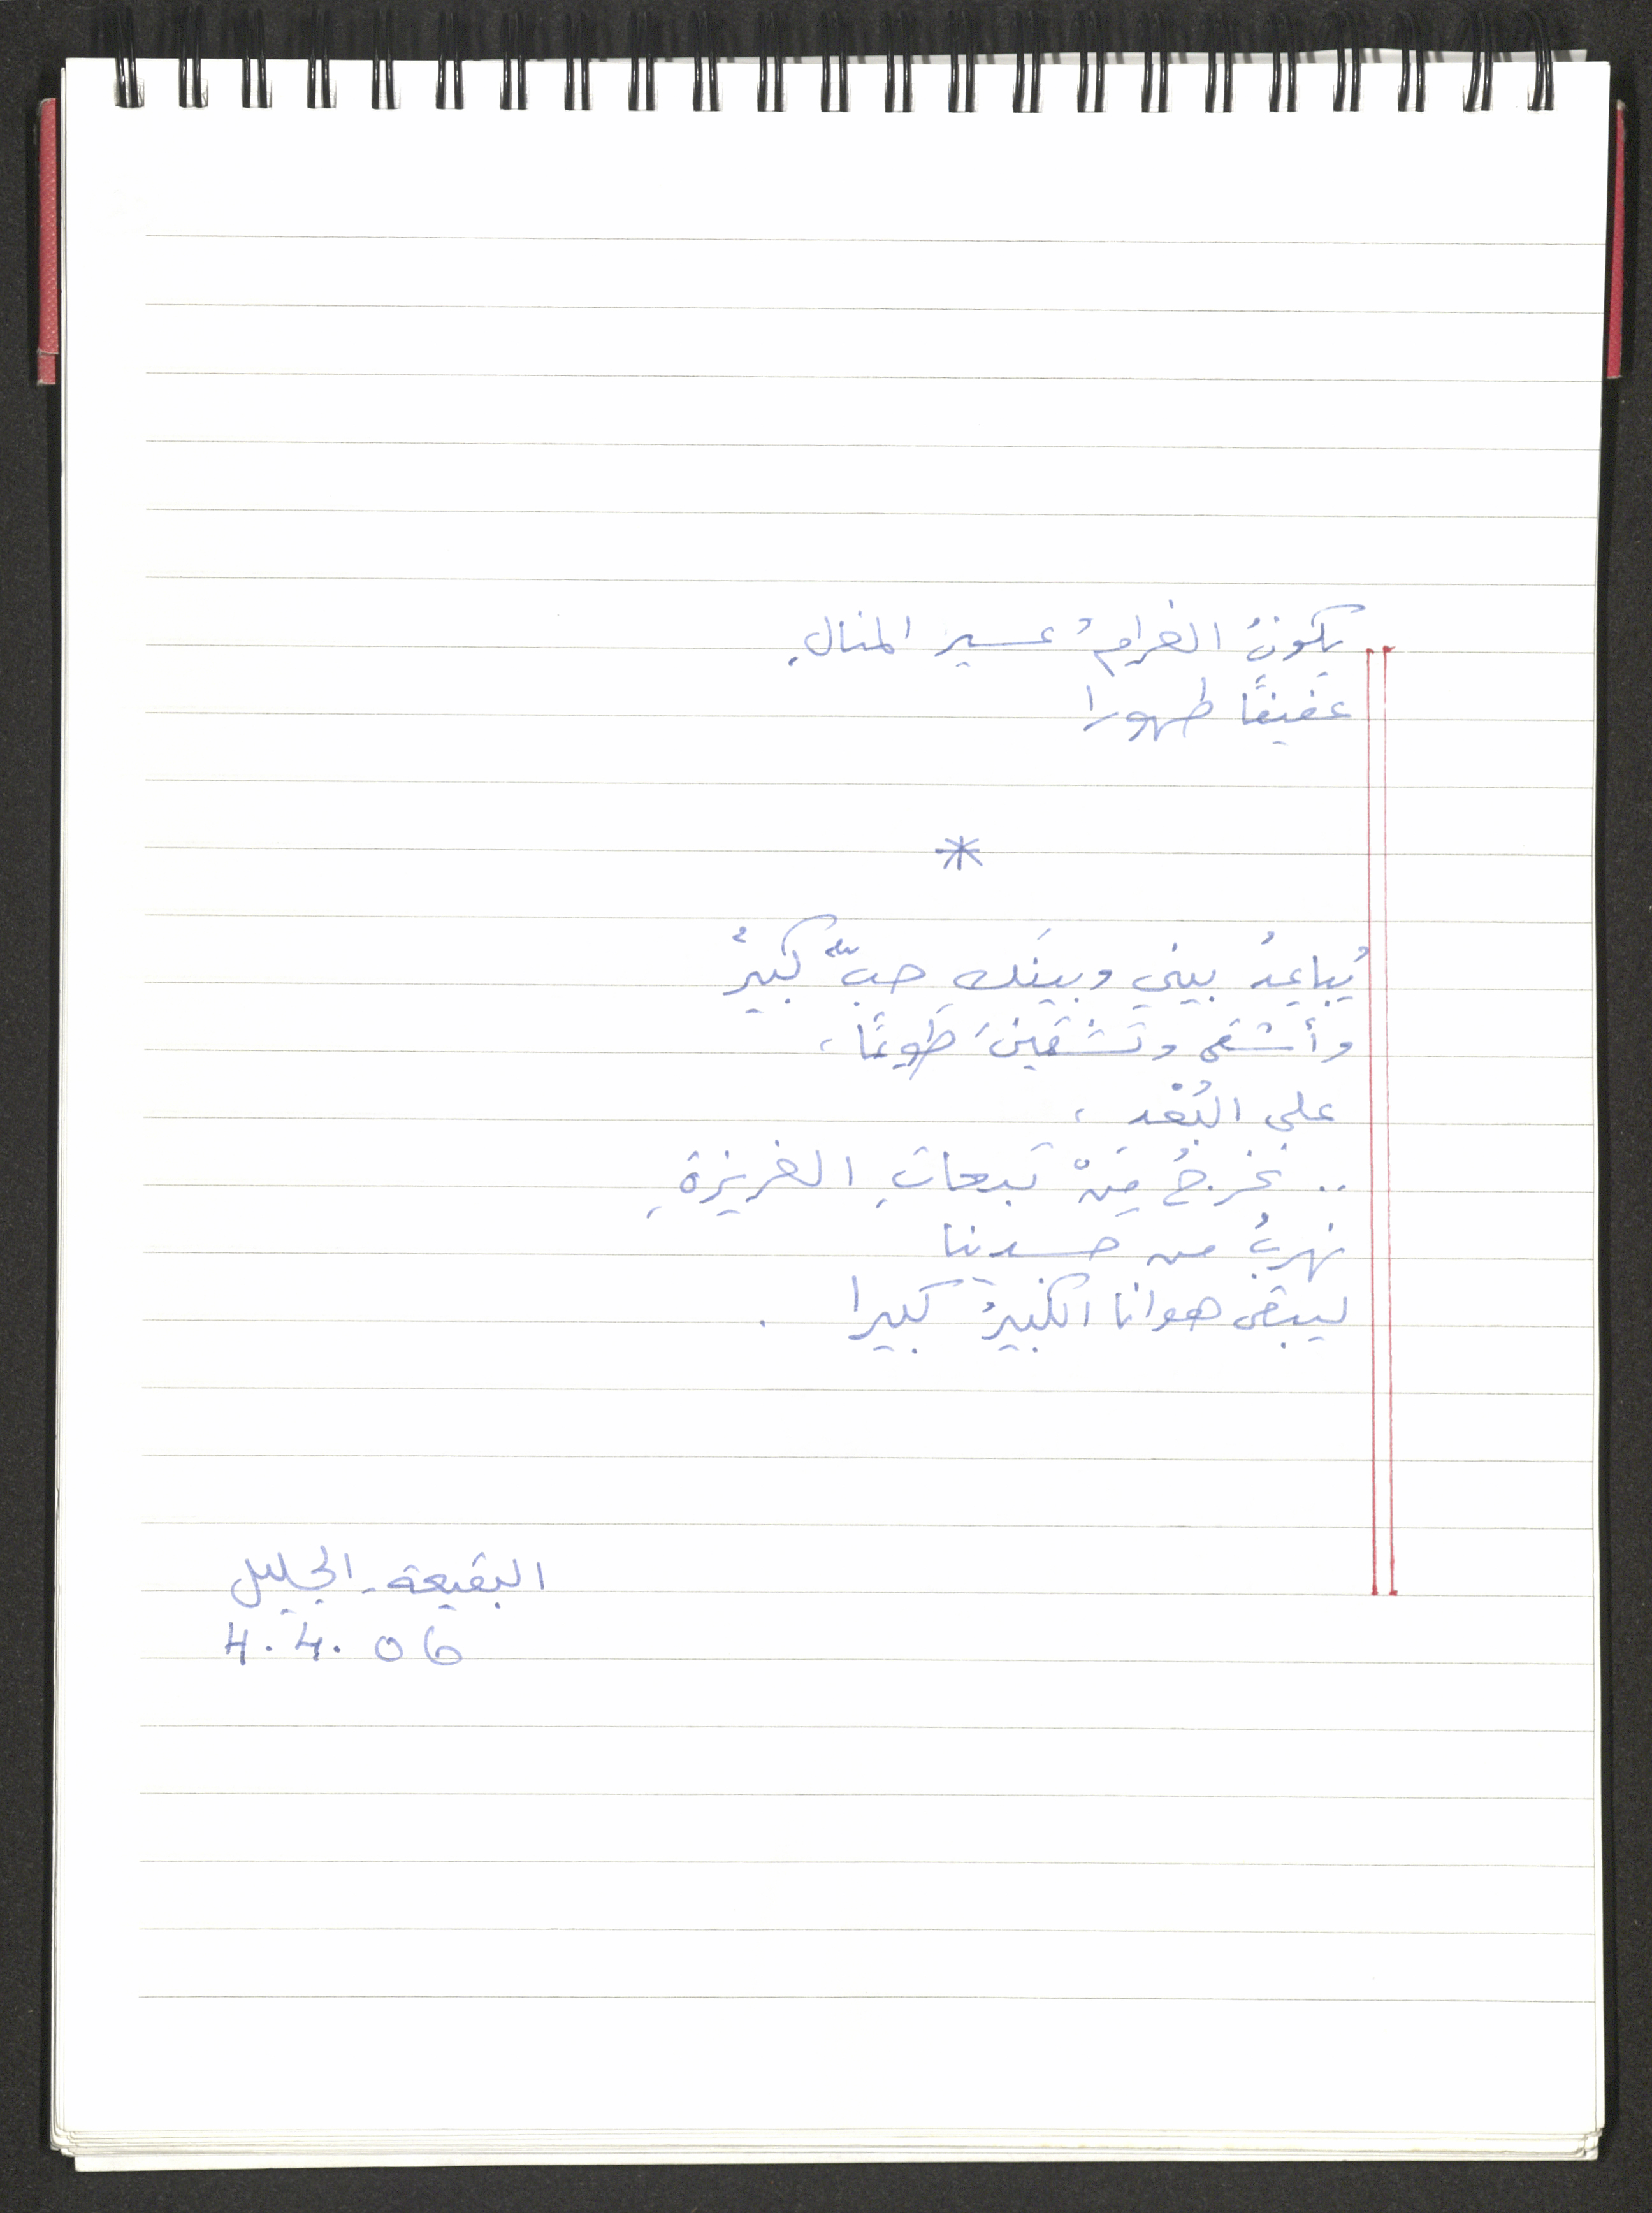 يكونُ الغرامُ عسير المنالِ
عفيفًا طهورا
*
يُباعِدُ بيني وبينَكِ حبٌّ كبيرٌ
وأشقى وتشقينَ طَوعًا،
على البُعْد،
.. نخرجُ مِنْ تبعاتِ الغريزةِ
نهربُ من جسدينا
ليبقى هوانا الكبيرُ كبيرا .
البقيعة - الجليل
4.4.06